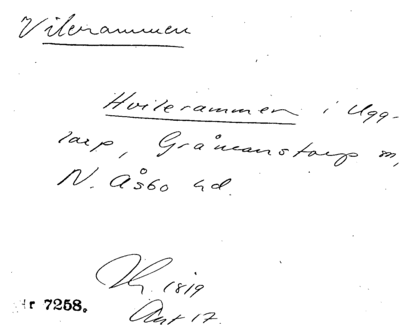 Vilerammen
Hvilerammen i Ugg-
larp, Gråmanstorp m,
N. Åsbo hd.
1819
Ant 17.
r 7258.